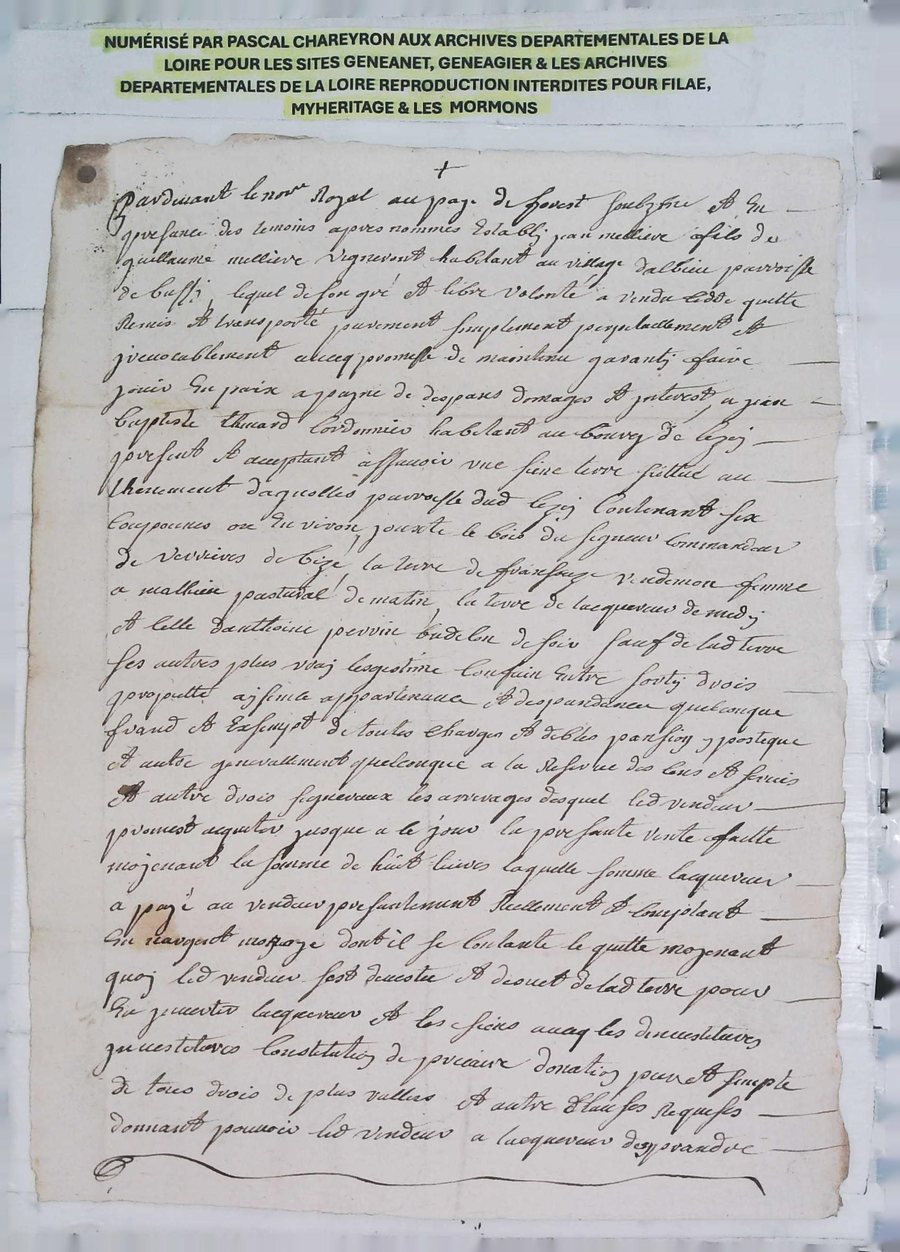 NUMÉRISÉ PAR PASCAL CHAREYRON AUX ARCHIVES DEPARTEMENTALES DE LA
LOIRE POUR LES SITES GENEANET, GENEAGIER & LES ARCHIVES
DEPARTEMENTALES DE LA LOIRE REPRODUCTION INTERDITES POUR FILAE,
MYHERITAGE & LES MORMONS
Pardevant le nore Royal au pays de forest soubzne Et En
presance des temoins apres nommés Estably jan mellieve fils de
guillaume mellieve vigneront habitant au village dalbieu parroisse
de bussi, lequel de son gré Et libre volonté a vendu cedde quitte
Remis Et transporté purement simplement perpetuellement Et
jrevocablement avecq promesse de maintenu garanty faire
jouir En paix a payne de despans domages Et jnterest, a jean
baptiste thinard Cordonnier habitant au bourg de lezy
present Et acceptant assavoir une siene terre scittue au
thenement daquolles parroisse dud lezy Contenant six
Coupounes ou Environ, jouxte le bois du segneur Commandeur
de verrieres de bize, la terre de vendemon femme
a mathieu pastural de matin, la terre de lacquereur de midy
Et celle danthoine perrin de soir sauf de lad terre
ses autres plus vray Confain Entre sorty drois
proprietté aysence appartenance Et despandance quelconque
frand Et Exsempt de toutes charges Et debtes pansion yposteque
Et autre generallement quelconque a la Reserve des Cens Et servis
Et autre drois segneuraux les arrerages desquel led vendeur
promest acquiter jusque a ce jour la presante vente faitte
mojenant la somme de huit livres laquelle somme lacquereur
a payé au vendeur presentement Reellement Et Comptant
En nargent monoye dont il se Contante le quitte mojenant
quoy led vendeur sest demestu Et devuet de lad terre pour
En jnvestir lacquereur Et les siens avecq les devestitures
jnvestitures Constitution de precaire donation pure Et simple
de tous drois de plus vallers Et autre Clauses Requises
donnant pouvoir led vendeur a lacquereur desprandre